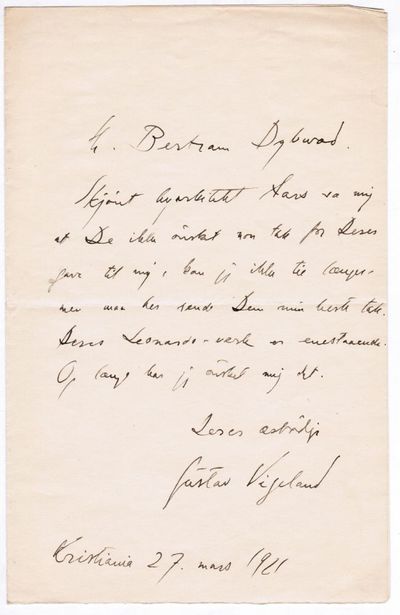 Hr. Bertram Dybwad.
Skjönt hr arkitekt Aars sa mig
at De ikke önsket non tak for Deres
gave til mig, kan jeg ikke tie længer
men maa her sende Dem min beste tak.
Deres Leonardo-verk er enestaaende.
Og længe har jeg önsket mig det.
Deres ærbödige
Gustav Vigeland
Kristiania 27. mars 1921